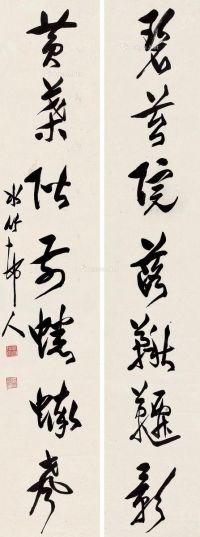 碧苔院落鞦韆影
黄葉階前蟋蟀聲
水竹邨人